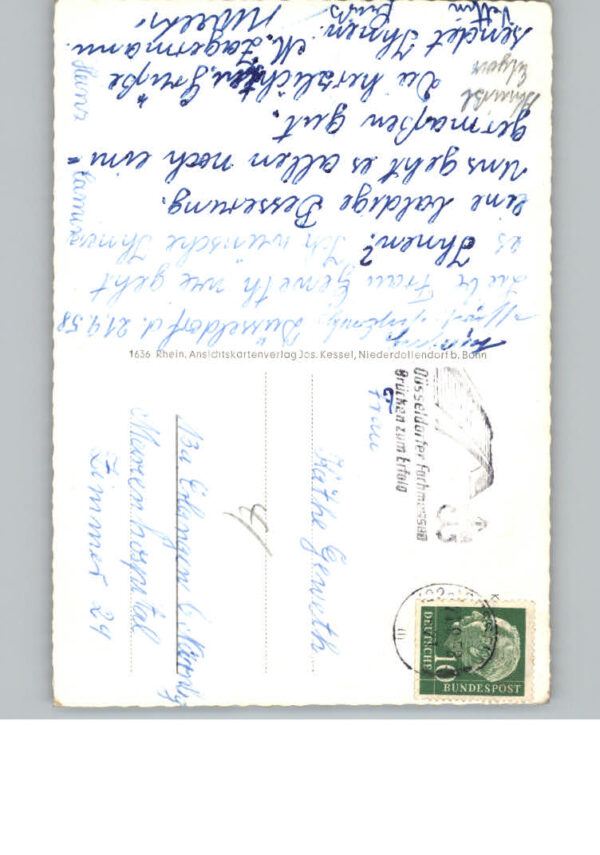 Düsseldorf d. 21.9.58
Liebe Frau Geweth wie geht
es Ihnen? Ich wünsche Ihnen
eine baldige Besserung.
Uns geht es allen noch eini=
germaßen gut.
Die herzlichsten Grüße
sendet Ihnen: M. Zagermann.
1636 Rhein. Ansichtskartenverlag Jos. Kessel, Niederdollendorf b. Bonn
Düsseldorfer Fachmessen
Brücken zum Erfolg
Frau
Käthe Geweth
13a Erlangen b. Nürnbg
Marienhospital
Zimmer 24
10
DEUTSCHE
BUNDESPOST